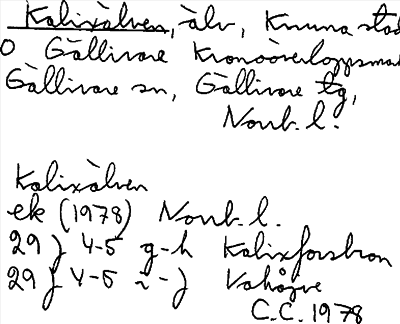 Kalixälven, älv, Kiruna stad
o Gällivare kronoöverloppsmark
Gällivare sn, Gällivare tg,
Norrb. l.
Kalixälven
ek (1978) Norrb. l.
29 J 4-5 g-h Kalixforsbron
29 J 4-5 i-j
C.C. 1978